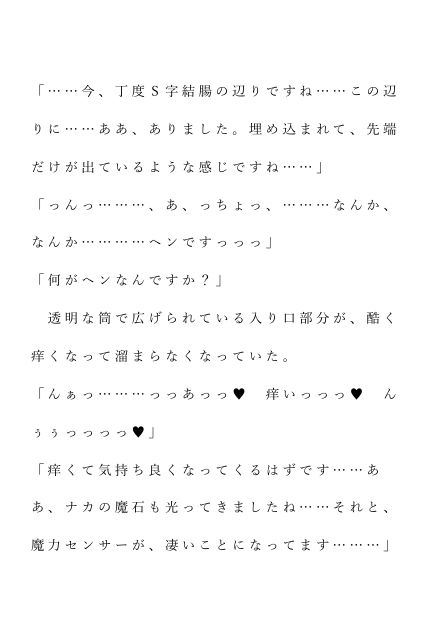 「……今、丁度Ｓ字結腸の辺りですね……この辺
りに……ああ、ありました。埋め込まれて、先端
だけが出ているような感じですね……」
「っんっ………、あ、っちょっ、………なんか、
なんか…………ヘンですっっっ」
「何がヘンなんですか？」
　透明な筒で広げられている入り口部分が、酷く
痒くなって溜まらなくなっていた。
「んぁっ………っっあっっ♥　痒いっっっ♥　ん
ぅぅっっっっ♥」
「痒くて気持ち良くなってくるはずです……あ
あ、ナカの魔石も光ってきましたね……それと、
魔力センサーが、凄いことになってます………」